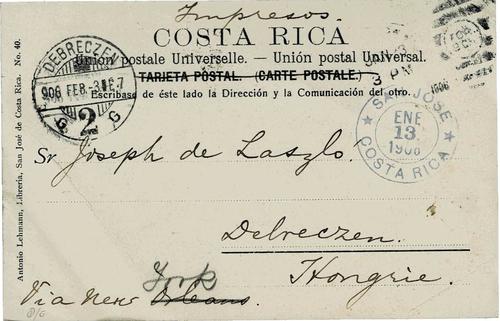 Impresos.
COSTA RICA
Unión postale Universelle. — Unión postal Universal.
TARJETA POSTAL. (CARTE POSTALE.)
Escribase de éste lado la Dirección y la Comunicación del otro.
DEBRECZEN
906 FEB.-3
2
G G
3 PM
1906
SAN JOSE
ENE
13
1906
COSTA RICA
Sr. Joseph de Laszlo.
Debreczen.
Hongrie.
York
Via New Orleans.
Antonio Lehmann, Libreria, San José de Costa Rica. No. 40.